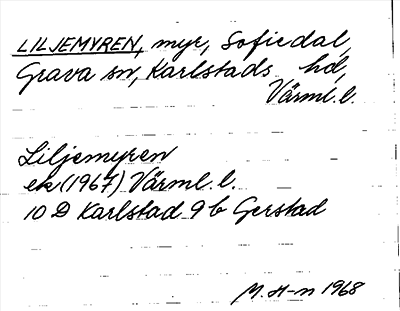 LILJEMYREN, myr, Sofiedal,
Grava sn, Karlstads hd,
Värml. l.
Liljemyren
ek (1967) Värml. l.
10 D Karlstad 9 b Gerstad
M. H-n 1968